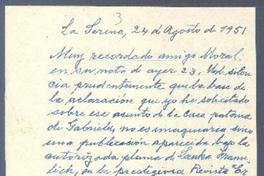 3
La Serena, 24 de Agosto de 1951
Muy recordado amigo Moral,
en su nota de ayer 23, Ud. silen
cia prudentemente que la base de
la aclaración que yo he solicitado
sobre ese asunto de la casa paterna
de Gabriela, no es imaginaria sino
una publicación aparecida bajo la
autorizada pluma de
lich, en la prestigiosa Revista Er